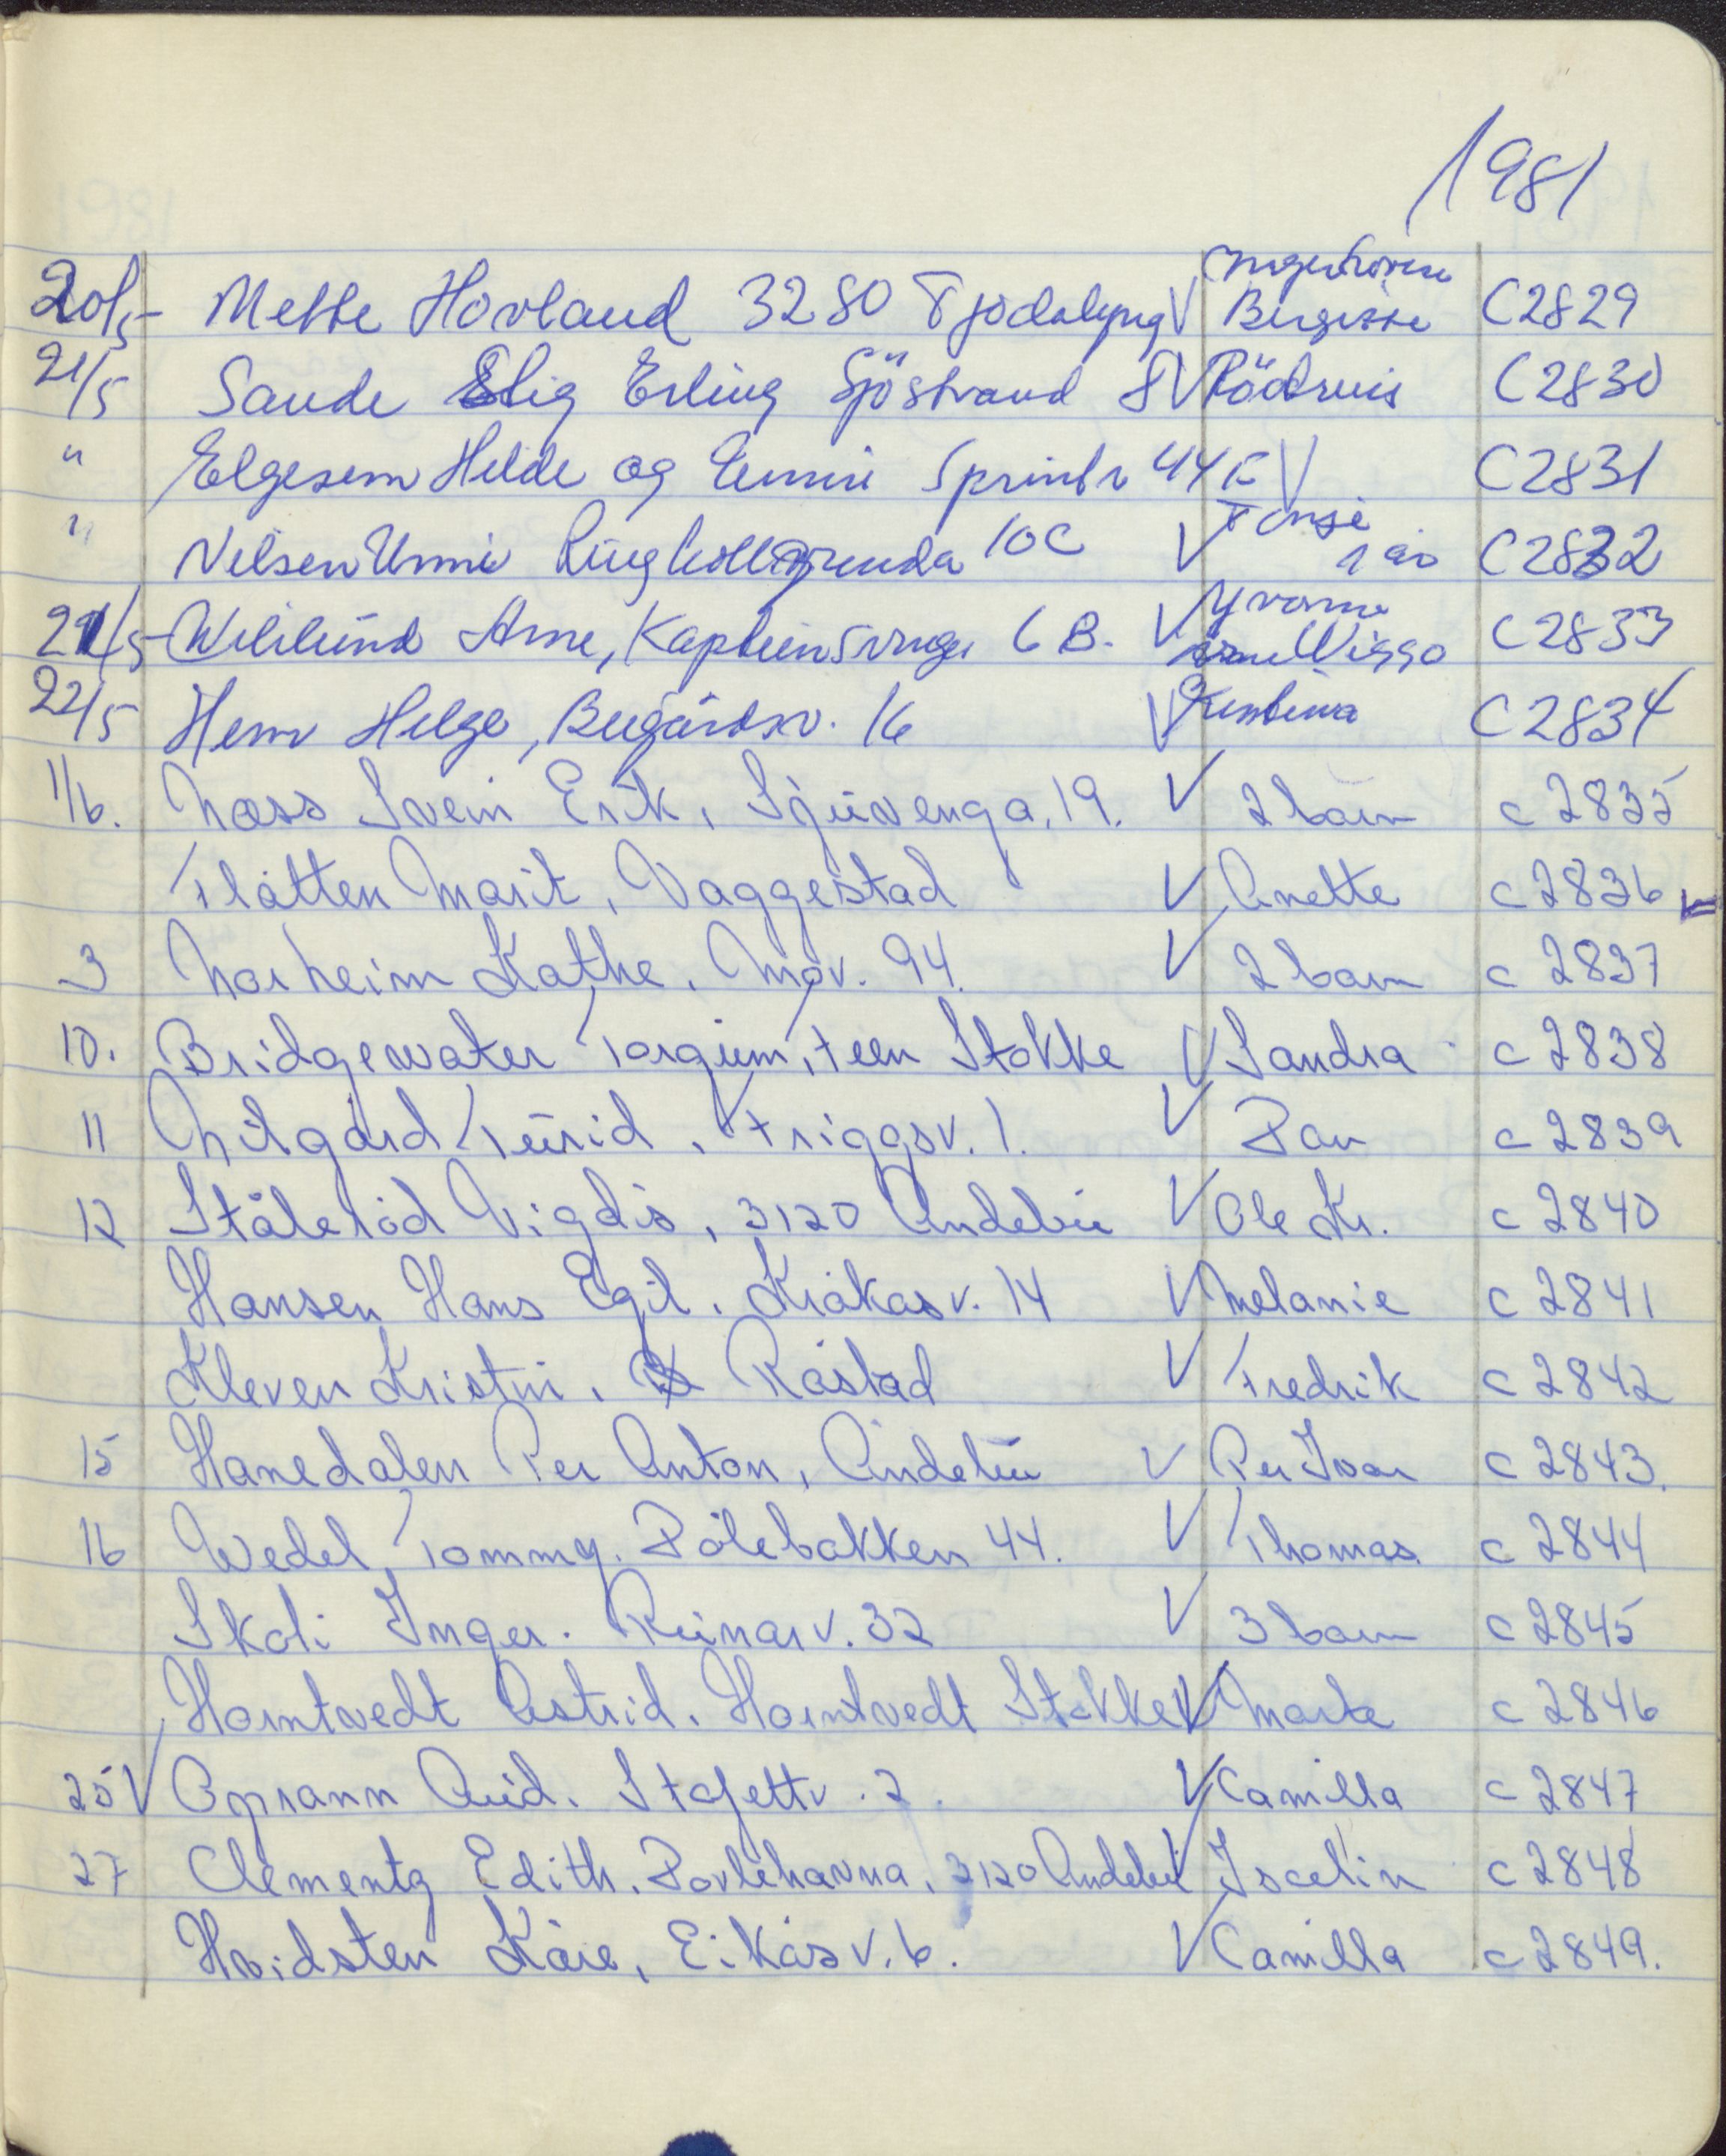 1981
20/5 Mette Hovland 3280 Tjodalyng V Birgitte C2829
21/5 Sande Stig Erling Sjöstrand 8 V C2830
" Elgesem Hilde og Unni Sprintv 44 E V C2831
" Nilsen Unni Ringkollgrunda 10C V Tonje 1 år C2832
21/5 Arne, Kapteinsvingen 6 B. V Yvonne Wiggo C2833
22/5 Hem Helge, Bugårdsv. 16 V C2834
1/6. Næss Svein Erik, 19. V 2 barn c 2835
Flåtten Marit, Vaggestad V Anette c 2836
3 Norheim Kathe, Mov. 94. V 2 barn c 2837
10. Bridgewater Torgunn, Feen Stokke V Sandra c 2838
11 Milgård Turid, Friggsv. 1. V Pan c 2839
12 Ståleröd Vigdis, 3120 Andebu V Ole Kr. c 2840
Hansen Hans Egil, Kråkåsv. 14 V Melanie c 2841
Kleven Kristin, Råstad V Fredrik c 2842
15 Hanedalen Per Anton, Andebu V Per Ivar c 2843.
16 Wedel Tommy. Pölebakken 44. V Thomas c 2844
Skoli Inger. Runarv. 32 V 3 barn c 2845
Horntvedt Astrid. Horntvedt Stokke V Marte c 2846
25 V Aud. Stafettv. 2. V Camilla c 2847
27 Clementz Edith. 3120 Andebu V Iselin c 2848
Hvidsten Kåre, Eikåsv. 6. V Camilla c 2849.